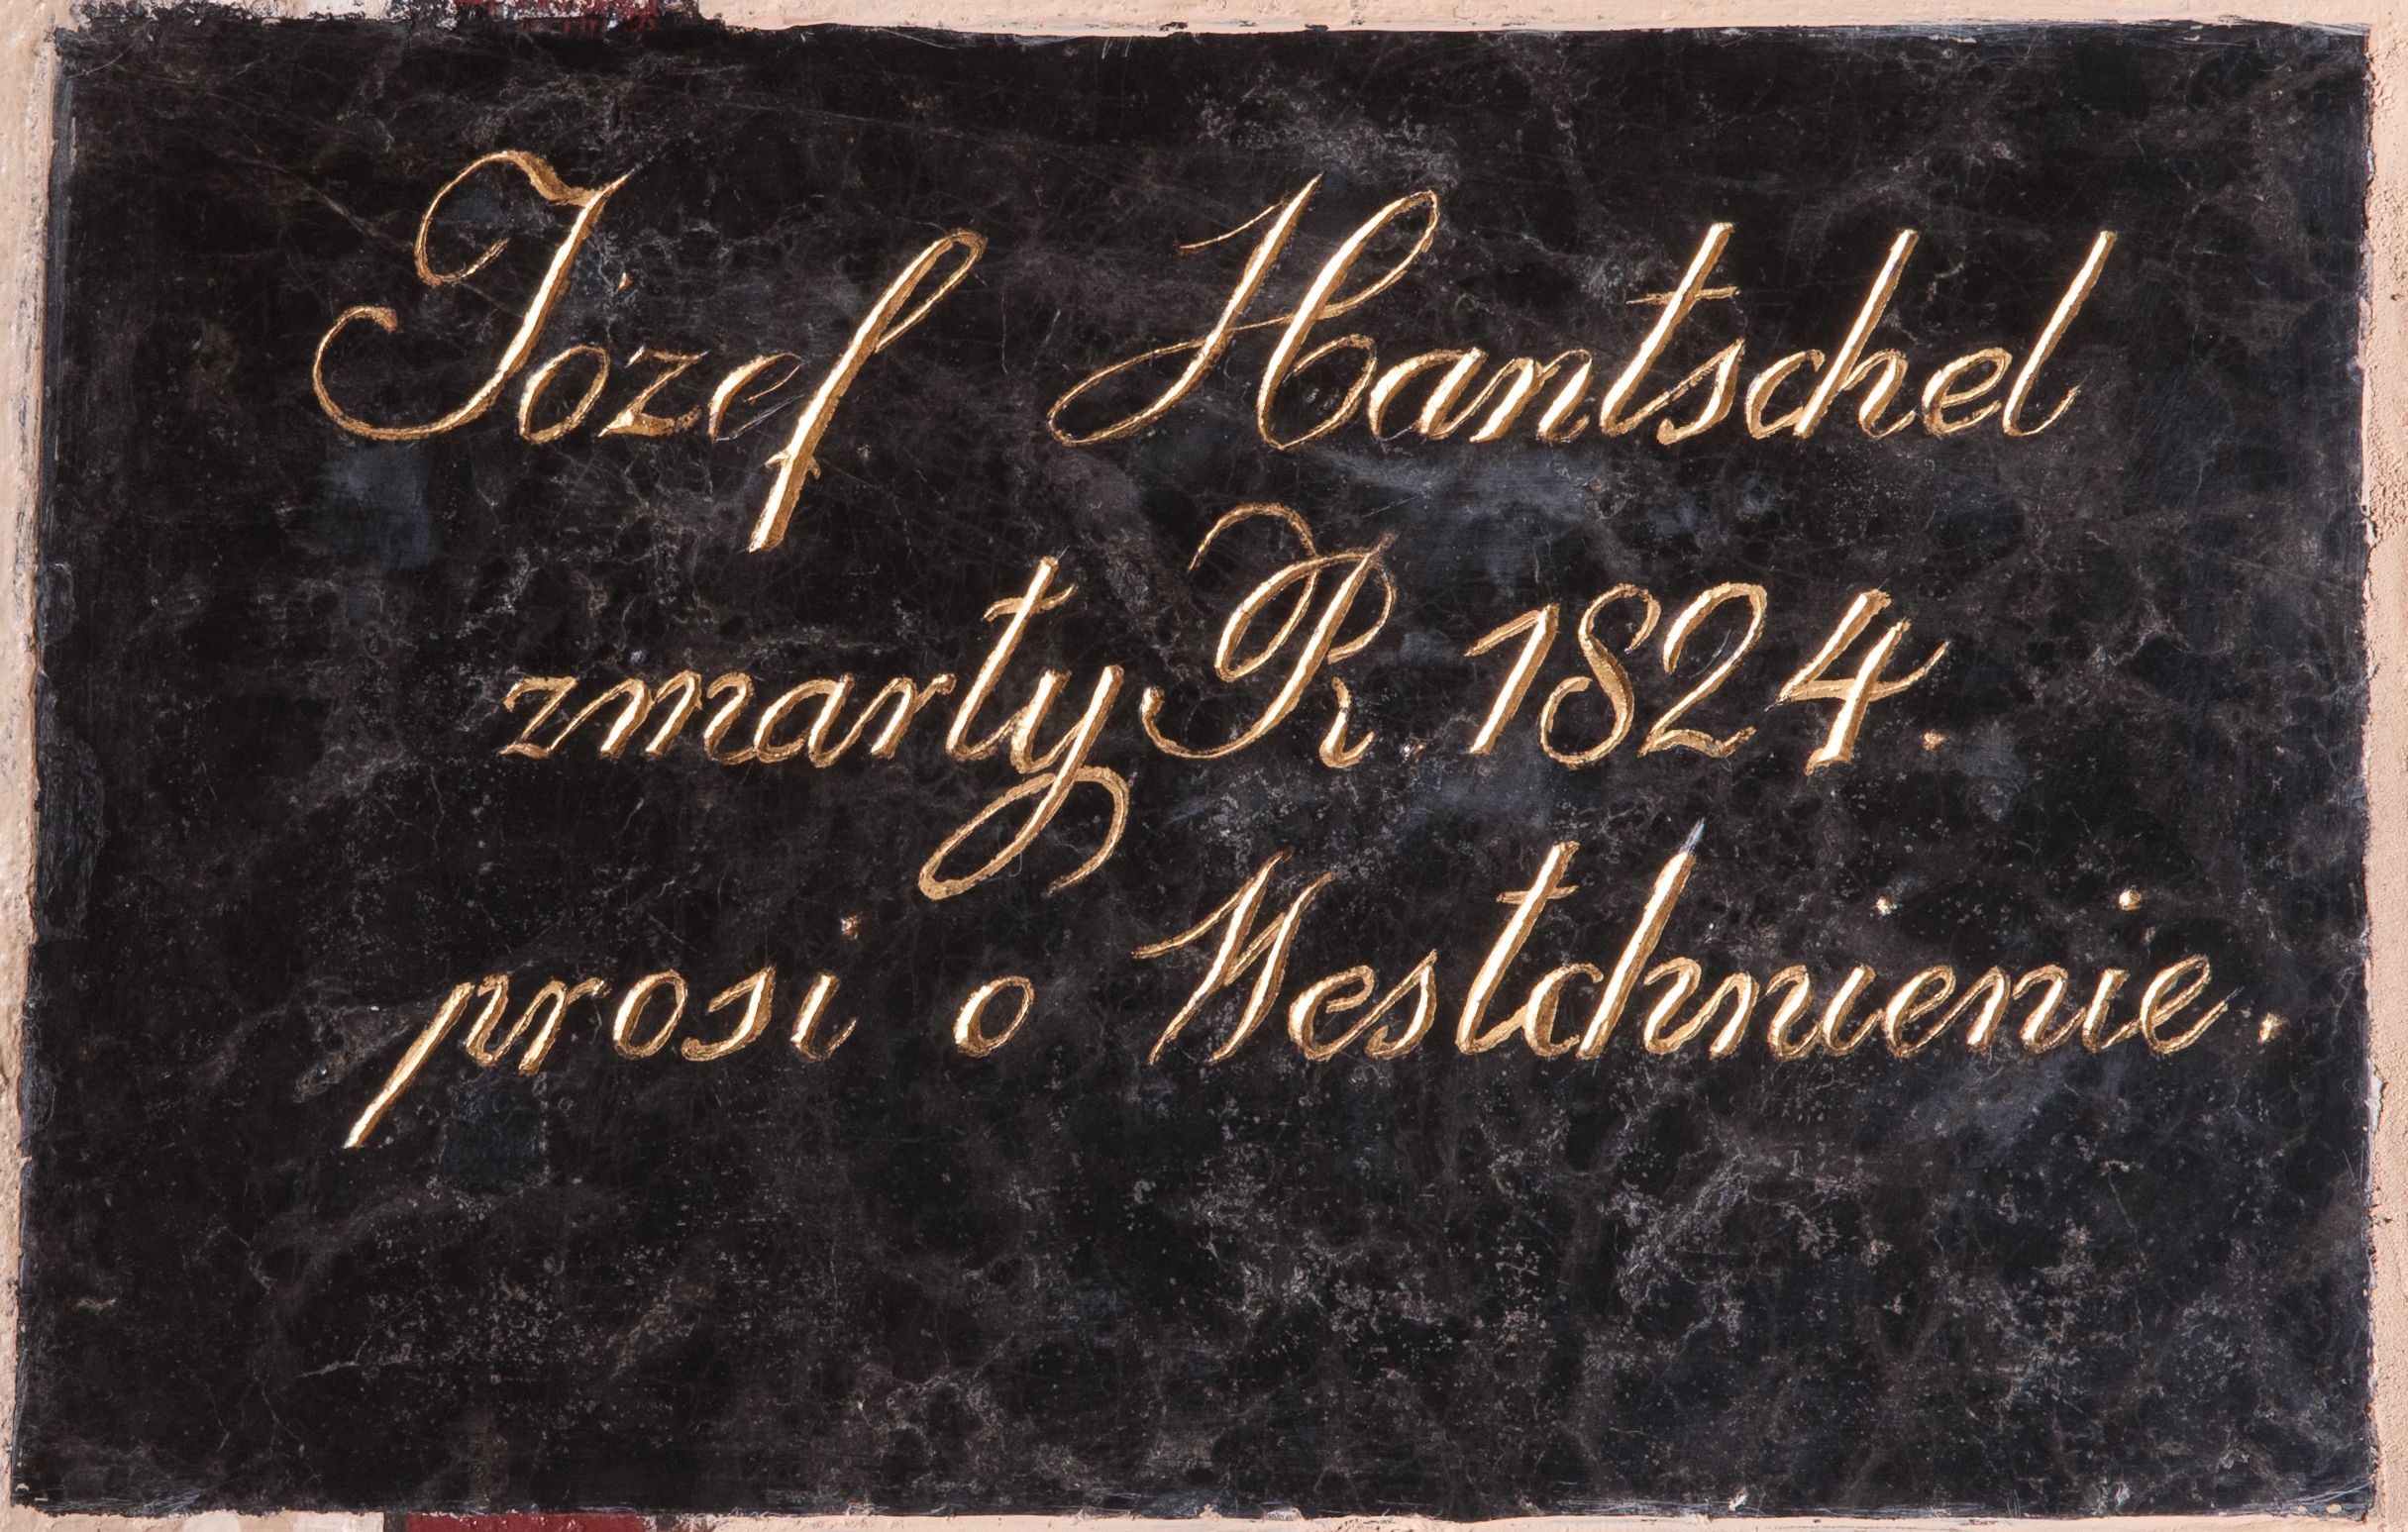 Józef Hantschel
zmarły R. 1824.
prosi o Westchnienie.